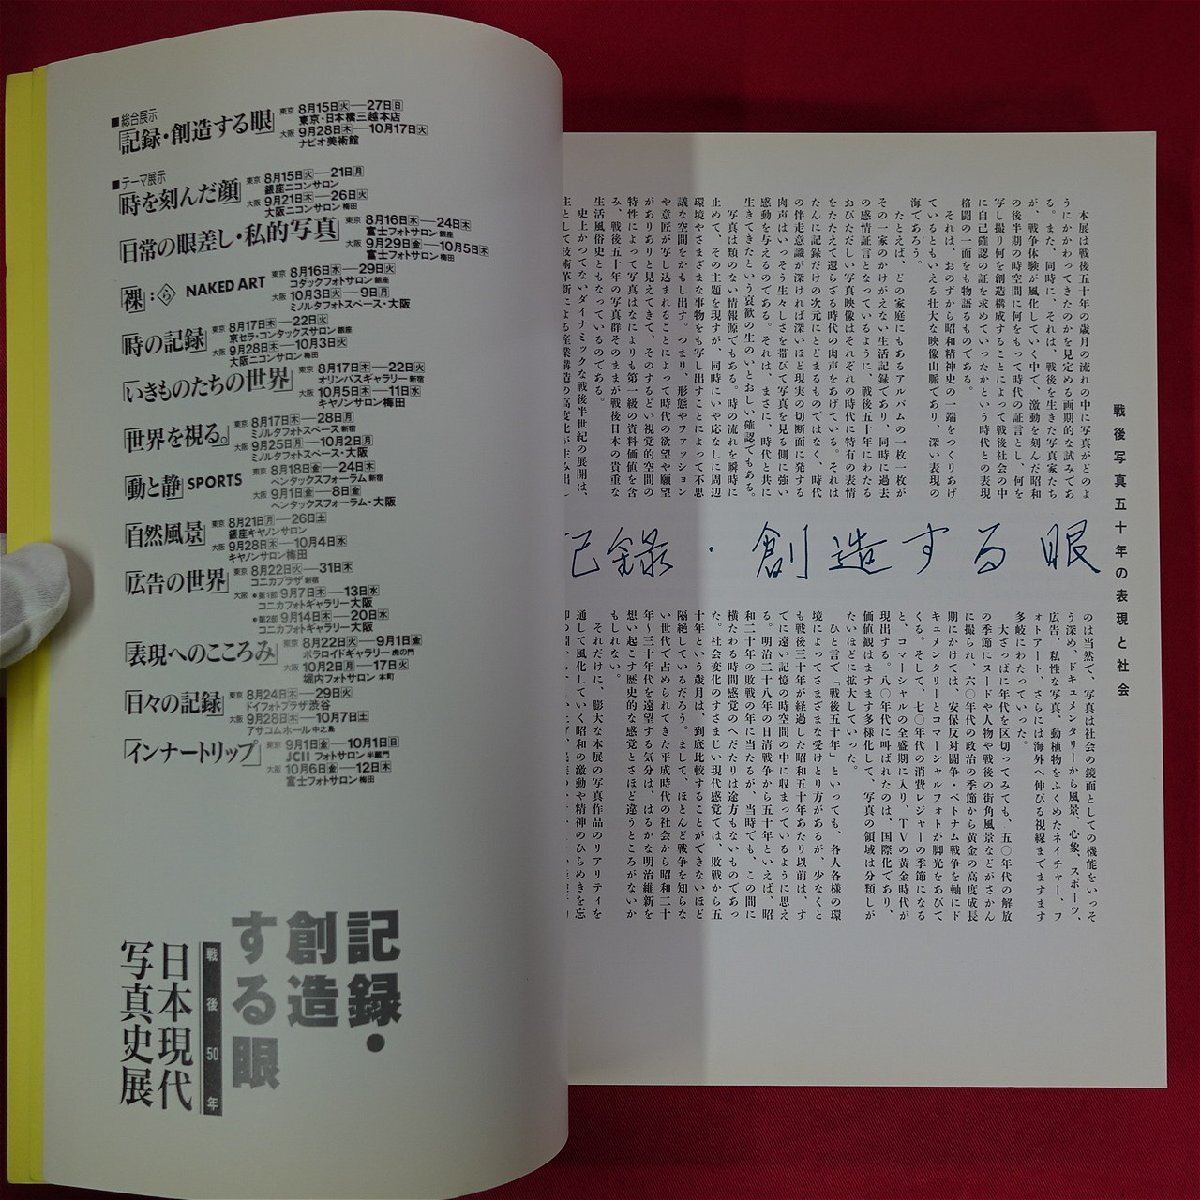 ■総合展示
「記録・創造する眼」
東京 8月15日火—27日日
東京・日本橋三越本店
大阪 9月28日木—10月17日火
ナビオ美術館
■テーマ展示
「時を刻んだ顔」
東京 8月15日火—21日月
銀座ニコンサロン
大阪 9月21日木—26日火
大阪ニコンサロン 梅田
「日常の眼差し・私的写真」
東京 8月16日水—24日木
富士フォトサロン 銀座
大阪 9月29日金—10月5日木
富士フォトサロン 梅田
「裸:ら」 NAKED ART
東京 8月16日水—29日火
コダックフォトサロン 銀座
大阪 10月3日火—9日月
ミノルタフォトスペース・大阪
「時の記録」
東京 8月17日木—22日火
京セラ・コンタックスサロン 銀座
大阪 9月28日木—10月3日火
大阪ニコンサロン 梅田
「いきものたちの世界」
東京 8月17日木—22日火
オリンパスギャラリー 新宿
大阪 10月5日木—11日水
キヤノンサロン梅田
「世界を視る。」
東京 8月17日木—28日月
ミノルタフォトスペース 新宿
大阪 9月25日月—10月2日月
ミノルタフォトスペース・大阪
「動と静」 SPORTS
東京 8月18日金—24日木
ペンタックスフォーラム 新宿
大阪 9月1日金—8日金
ペンタックスフォーラム・大阪
「自然風景」
東京 8月21日月—26日土
銀座キヤノンサロン
大阪 9月28日木—10月4日水
キヤノンサロン梅田
「広告の世界」
東京 8月22日火—31日木
コニカプラザ 新宿
大阪 ●第1部 9月7日木—13日水
コニカフォトギャラリー大阪
●第2部 9月14日木—20日水
コニカフォトギャラリー大阪
「表現へのこころみ」
東京 8月22日火—9月1日金
ポラロイドギャラリー 虎の門
大阪 10月2日月—17日火
堀内フォトサロン 本町
「日々の記録」
東京 8月24日木—29日火
ドイフォトプラザ渋谷
大阪 9月28日木—10月7日土
アサコムホール 中之島
「インナートリップ」
東京 9月1日金—10月1日日
JCII フォトサロン 半蔵門
大阪 10月6日金—12日木
富士フォトサロン 梅田
記録・
創造
する眼
戦後50年
日本現代
写真史展
戦後写真五十年の表現と社会
記録・創造する眼
本展は戦後五十年の歳月の流れの中に写真がどのよ
うにかかわってきたのかを見定める画期的な試みであ
る。また、同時に、それは、戦後を生きた写真家たち
が、戦争体験が風化していく中で、激動を刻んだ昭和
の後半期の時空間に何をもって時代の証言とし、何を
写し撮り何を創造構成することによって戦後社会の中
に自己確認の証を求めていったかという時代との表現
格闘の一面をも物語るものである。
それは、おのずから昭和精神史の一端をつくりあげ
ているともいえる壮大な映像山脈であり、深い表現の
海であろう。
たとえば、どの家庭にもあるアルバムの一枚一枚が
その一家のかけがえない生活記録であり、同時に過去
の感情証言となっているように、戦後五十年にわたる
おびただしい写真映像はそれぞれの時代に特有の表情
をたたえて還らざる時代の肉声をあげている。それは
たんに記録だけの次元にとどまるものではなく、時代
の伴走意識が深ければ深いほど現実の切断面に発する
肉声はいっそう生々しさを帯びて写真を見る側に強い
感動を与えるのである。それは、まさに、時代と共に
生きてきたという哀歓の生のいとおしい確認でもある。
写真は類のない情報源でもある。時の流れを瞬時に
止めて、その主題を現すが、同時にいや応なしに周辺
環境やさまざまな事物をも写し出すことによって不思
議な空間をかもし出す。つまり、形態やファッション
や意匠が写し込まれることによって時代の欲望や願望
がありありと見えてきて、そのするどい視覚的空間の
特性によって写真はなによりも第一級の資料価値を含
み、戦後五十年の写真群そのままが戦後日本の貴重な
生活風俗史ともなっているのである。
史上かつてないダイナミックな戦後半世紀の展開は、
主として技術革新による産業構造の高度化が生み出し
のは当然で、写真は社会の鏡面としての機能をいっそ
う深め、ドキュメンタリーから風景、心象、スポーツ、
広告、私性な写真、動植物をふくめたネイチャー、フ
ォトアート、さらには海外へ伸びる視線までますます
多岐にわたっていった。
大ざっぱに年代を区切ってみても、五〇年代の解放
の季節にヌードや人物や戦後の街角風景などがさかん
に撮られ、六〇年代の政治の季節から黄金の高度成長
期にかけては、安保反対闘争・ベトナム戦争を軸にド
キュメンタリーとコマーシャルフォトが脚光をあびて
くる。そして、七〇年代の消費レジャーの季節になる
と、コマーシャルの全盛期に入り、TVの黄金時代が
現出する。八〇年代に叫ばれたのは、国際化であり、
価値観はますます多様化して、写真の領域は分類しが
たいまでに拡大していった。
ひと言で「戦後五十年」といっても、各人各様の環
境によってさまざまな受けとり方があるが、少なくと
も戦後三十年が経過した昭和五十年あたり以前は、す
でに遠い記憶の時空間の中に収まっているように思え
る。明治二十八年の日清戦争から五十年といえば、昭
和二十年の敗戦の年に当たるが、当時でも、この間に
横たわる時間感覚のへだたりは途方もないものであっ
た。社会変化のすさまじい現代感覚では、敗戦から五
十年という歳月は、到底比較することができないほど
隔絶しているだろう。まして、ほとんど戦争を知らな
い世代で占められてきた平成時代の社会から昭和二十
年〜三十年代を遠望する気分は、はるかな明治維新を
想い起こす歴史的な感覚とさほど違うところがないか
もしれない。
それだけに、膨大な本展の写真作品のリアリティを
通して風化していく昭和の激動や精神のひらめきを忘